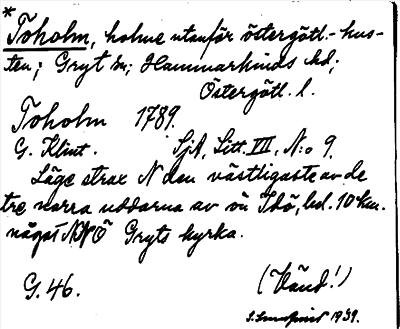 *
Toholm, holme utanför östergötl.-hus-
ten; Gryt sn; Hammarkinds hd;
Östergötl. l.
Toholm 1789.
G. Klint. SjA, Litt. VII, N:o 9.
Läge strax N den västligaste av de
tre norra uddarna av ön Idö, bel. 10 km.
något NNÖ Gryts kyrka.
G. 46. (Vänd!)
S. 1939.